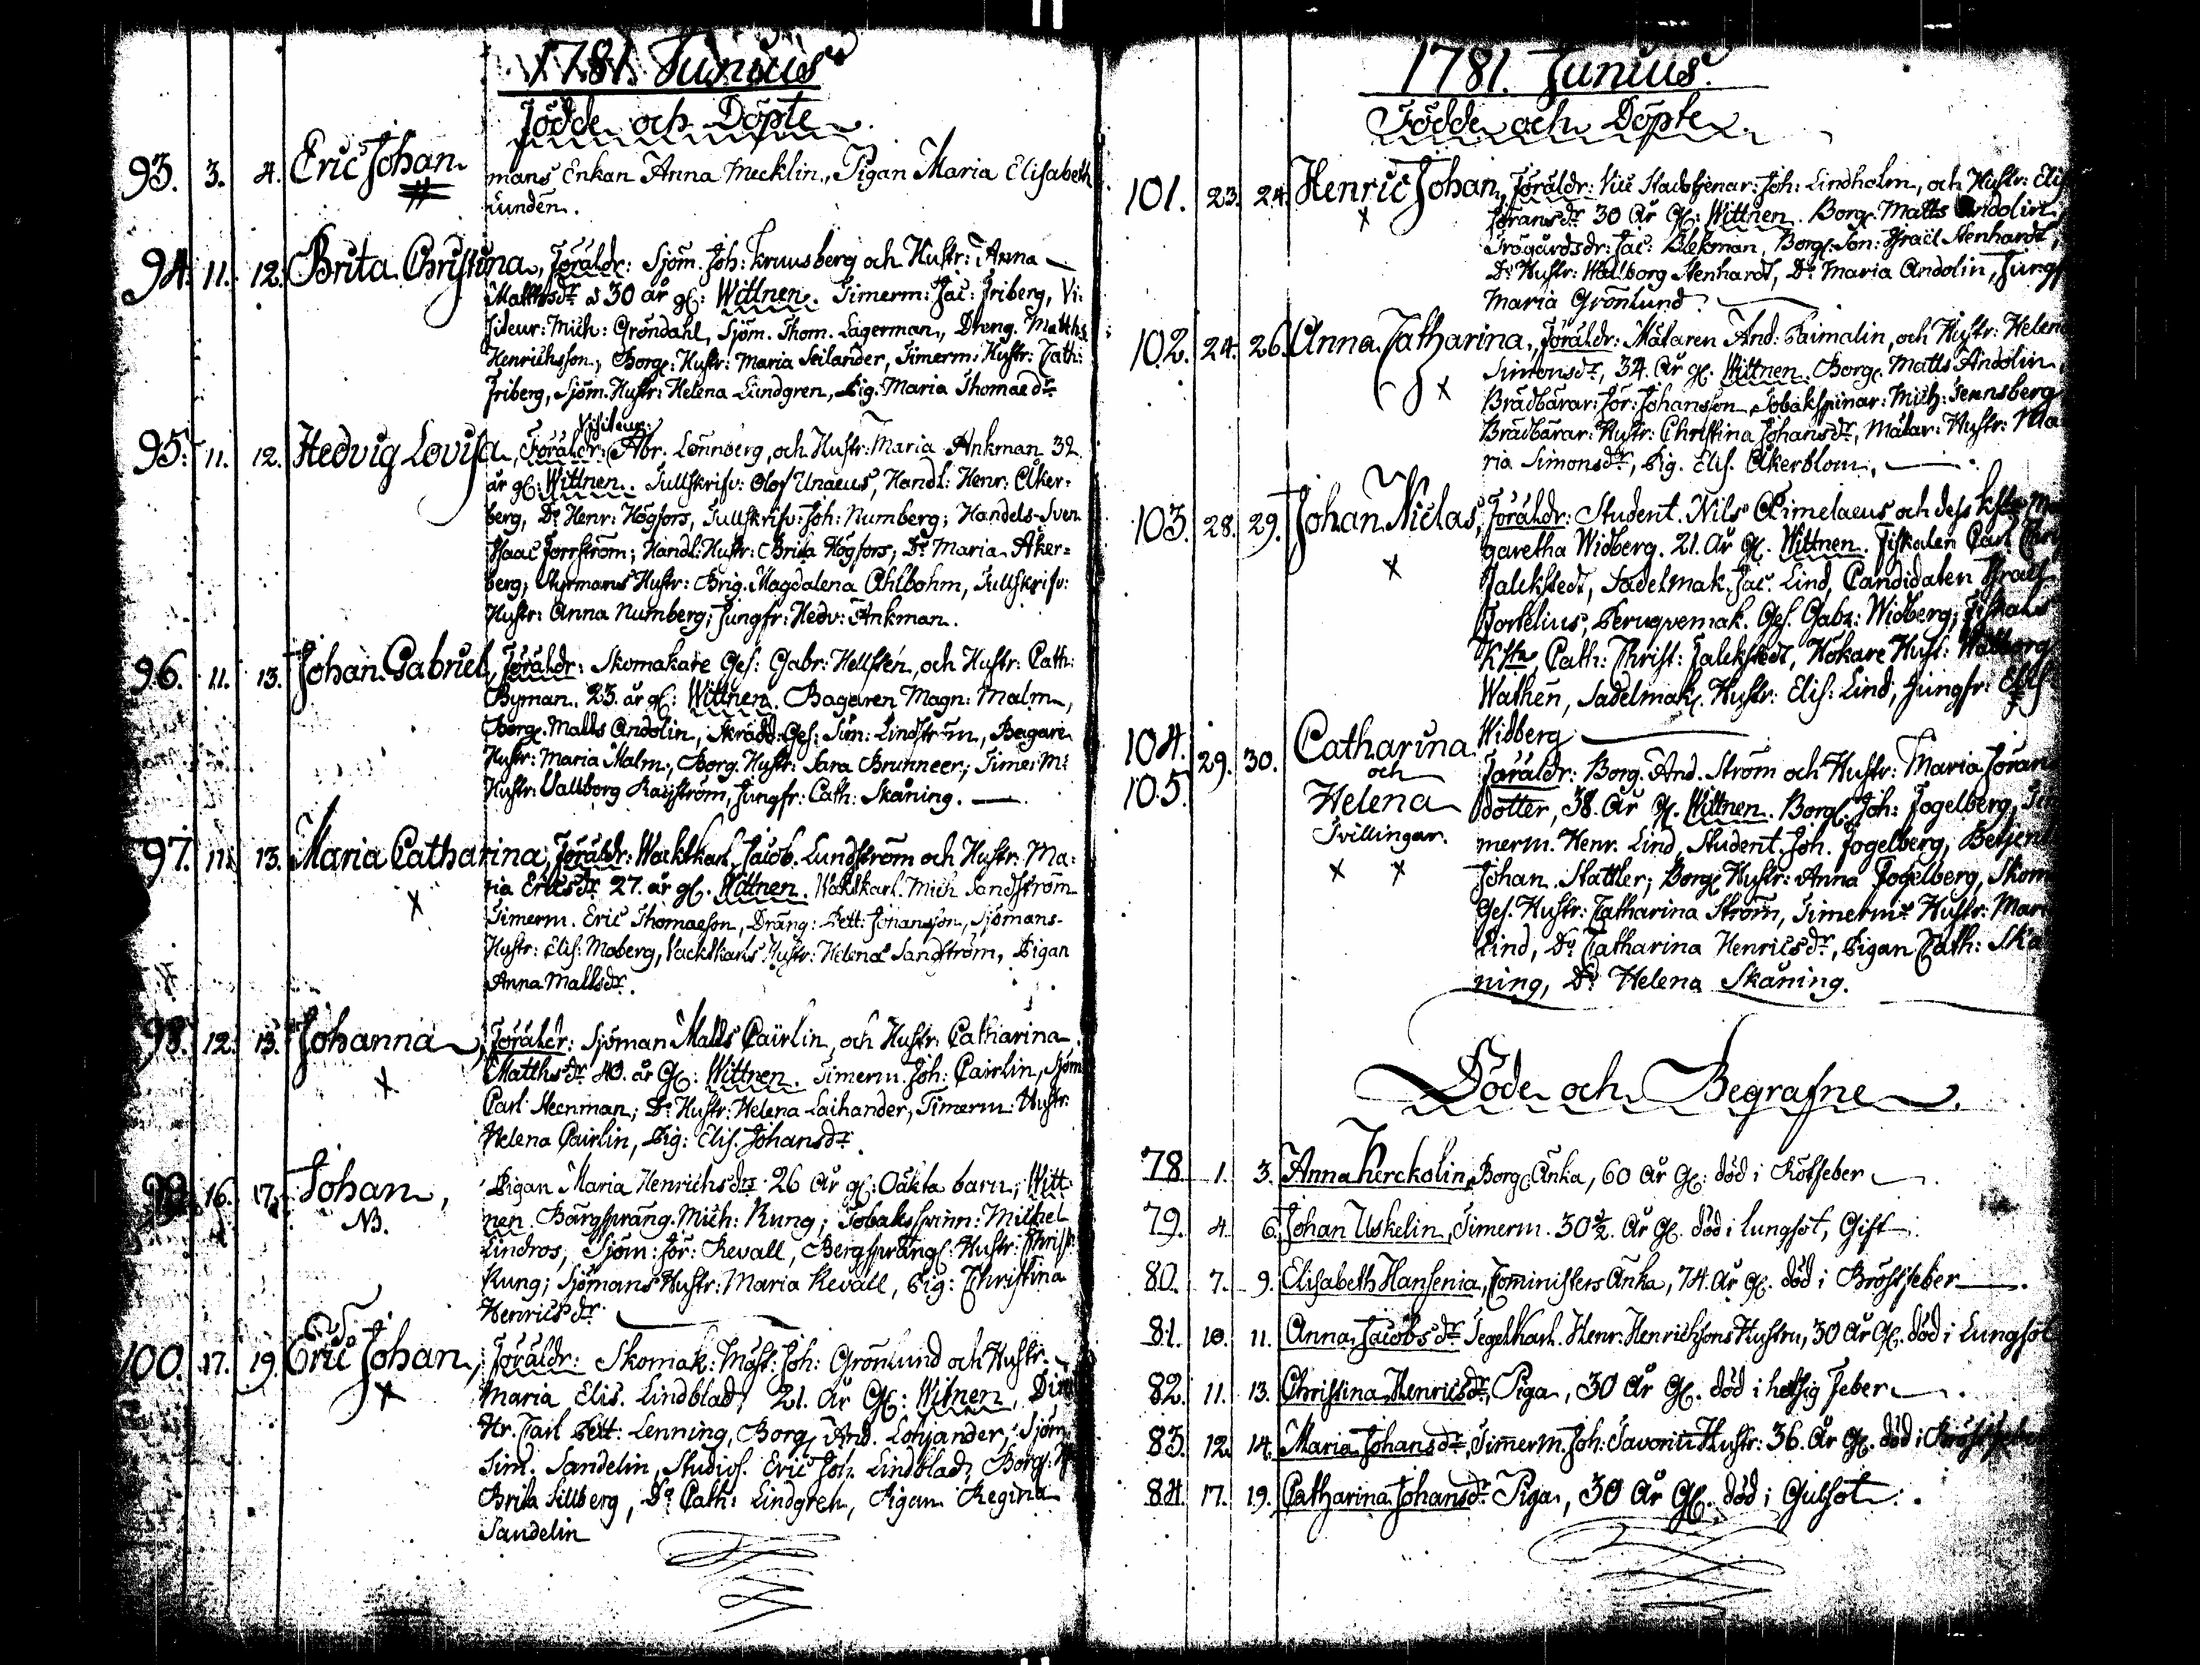 1781. Junius
Födde och Döpte
93. 3. 4. Eric Johan mans Enkan Anna Mecklin, Pigan Maria Elisabeth
Lunden.
94. 11. 12. Brita Christina, Föräldr: Sjöm. Joh: Kruusberg och Hustr: Anna
Matthsdr 30 år gl: Wittnen. Timerm: Jac: Friberg, Vi:
siteur: Mich: Gröndahl, Sjöm. Thom. Lagerman, Dreng. Matths
Henrichsson, Borg: Hustr: Maria Seilander, Timerm: Hustr: Cath:
Friberg, Sjöm. Hustr: Helena Lundgren, Pig. Maria Thomædr
Visiteur:
95. 11. 12. Hedvig Lovisa, Föräldr: Abr. Lönnberg, och Hustr: Maria Ankman 32
år gl: Wittnen. Tullskrifv: Olof Unaeus, Handl: Henr: Åker=
berg, Do Henr: Högfors, Tullskrifv: Joh: Numberg; Handels-Sven
Isaac Forrström; Handl: Hustr: Brita Högfors; Do Maria Åker=
berg; Styrmans Hustr: Brig. Magdalena Ahlbohm, Tullskrifv:
Hustr: Anna Numberg; Jungfr: Hedv: Ankman.
96. 11. 13. Johan Gabriel, Föräldr: Skomakare Ges: Gabr: Hellstén, och Hustr: Cath:
Byman. 23. år gl: Wittnen. Bagaren Magn: Malm,
Borg. Matts Andolin, Skrädd: Ges: Sim: Lindström, Bagare
Hustr: Maria Malm, Borg. Hustr: Sara Brunneer; Timerm:
Hustr: Vallborg Kajström, Jungfr: Cath: Skåning.
97. 11. 13. Maria Catharina, Föräldr: Wacktkarl. Jacob. Lundström och Hustr: Ma:
ria Ericsdr 27. år gl. Wittnen. Waktkarl. Mich Sandström
Timerm. Eric Thomaeson, Dräng: Pett: Johansson, Sjömans-
Hustr: Elis: Moberg, Vacktkarls Hustr: Helena Sandström, Pigan
Anna Mattsdr.
98. 12. 13. Johanna, Föräldr: Sjöman Matts Cairlin, och Hustr: Catharina
Matthsdr 40. år Gl: Wittnen. Timerm. Joh: Cairlin, Sjöm
Carl Steenman; Do Hustr: Helena Laihander, Timerm: Hustr:
Helena Cairlin, Pig: Elis. Johansdr.
99. 16. 17. Johan, Pigan Maria Henrichsdr 26 år gl: Oäkta barn; Witt
NB. nen. Bärgspräng. Mich: Kung; Tobaksspinn: Michel
Lindros, Sjöm: Jör: Revall, Bergspräng: Hustr: Christ:
Kung; Sjömans Hustr: Maria Revall, Pig: Christina
Henricsdr.
100. 17. 19. Eric Johan, Föräldr: Skomak: Mäst: Joh: Grönlund och Hustr.
Maria Elis. Lindblad, 21. år Gl: Witnen,
Hr. Carl Pett: Lenning, Borg. And. Lohjander, Sjöm
Sim. Sandelin, Studios. Eric Joh. Lindblad, Borg:
Brita Sillberg, Do Cath: Lindgren, Pigan Regina
Sandelin
1781. Junius.
Födde och Döpte
101. 23. 24. Henric Johan, Föräldr: Vice Stadstjenar: Joh: Lindholm, och Hustr: Elis
Jöransdr 30 år Gl: Wittnen. Borg. Matts Andolin,
Trägårdsdr: Jac: Blekman, Borg. Son: Israël Stenhardt,
Do Hustr: Wallborg Stenhardt, Do Maria Andolin, Jungf
Maria Grönlund
102. 24. 26. Anna Catharina, Föräldr: Mätaren And: Paimalin, och Hustr: Helena
Simonsdr, 34. år gl. Wittnen. Borg. Matts Andolin,
Brädbärar: Jör: Johansson, Tobakspinar: Mich: Jernsberg
Brädbärar: Hustr: Christina Johansdr, Mätar: Hustr: Ma
ria Simonsdr, Pig. Elis. Åkerblom,
103. 28. 29. Johan Niclas, Föräldr: Student. Nils Aimelaeus och dess Hstr. Mar
garetha Widberg. 21. år gl. Wittnen. Fiskalen Carl Chri
Falckstedt, Sadelmak. Jac. Lind, Candidaten Israel
Portelius, Peruqvemak. Ges. Gabr: Widberg, Fiskals
Cath: Christ: Falckstedt, Hökare Hust: Wallborg
Wathén, Sadelmak. Hustr: Elis: Lind, Jungfr: Elis
Widberg
104. 105. 29. 30. Catharina och Helena Föräldr: Borg. And. Ström och Hustr: Maria Jöran
Tvillingar. dotter, 38. år gl. Wittnen. Borg. Joh: Fogelberg, Tim
merm. Henr. Lind, Student. Joh. Fogelberg, Betjent
Johan Stattler; Borg. Hustr: Anna Fogelberg, Skom
Ges. Hustr: Catharina Ström, Timerm: Hustr: Mar
Lind, Do Catharina Henricsdr, Pigan Cath: Skå
ning, Do Helena Skåning.
Döde och Begrafne
78 1. 3. Anna Kerckolin, Borg. Änka, 60 år Gl: död i Rötfeber
79. 4 6. Johan Uskelin, Timerm. 30½. år Gl. död i lungsot, Gift
80. 7. 9. Elisabeth Hansenia, Cominisers Änka, 74. år gl. död i Bröstfeber
81. 10. 11. Anna Jacobsdr Segelkarl. Henr: Henrichsons Hustru, 30 år Gl. död i Lungsot
82. 11. 13. Christina Henricsdr, Piga, 30 år Gl. död i hetsig Feber
83. 12 14. Maria Johansdr, Timerm. Joh: Savoni Hustr: 36. år Gl. död i Bröstfeber
84 17. 19. Catharina Johansdr Piga, 30 år Gl. död i Gulsot.